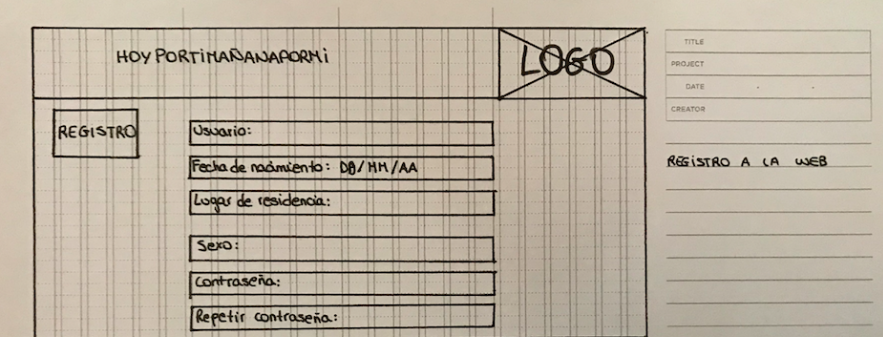 HOYPORTIMAÑANAPORMi
LOGO
REGISTRO
Usuario:
Fecha de nacimiento: DD/MM/AA
Lugar de residencia:
Sexo:
Contraseña:
Repetir contraseña:
TITLE
PROJECT
DATE
CREATOR
REGiSTRO A LA WEB